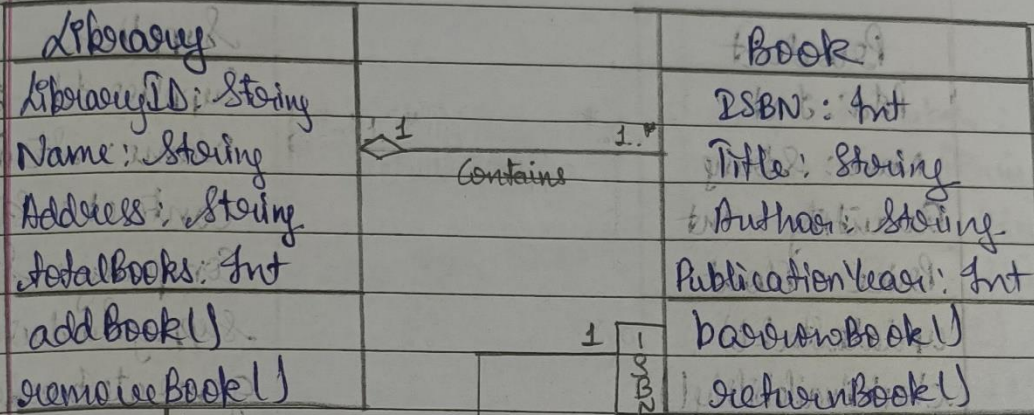 Library
LibraryID: String
Name: String
Address: String
totalBooks: Int
addBook()
removeBook()
1
1..*
Contains
1
ISBN
Book
ISBN: Int
Title: String
Author: String
PublicationYear: Int
barrowBook()
returnBook()